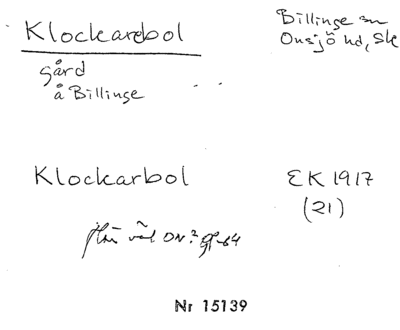 Klockarebol
Billinge sn
Onsjö hd, Sk
gård
å Billinge
Klockarbol
EK 1917
(21)
väl ON?
Nr 15139